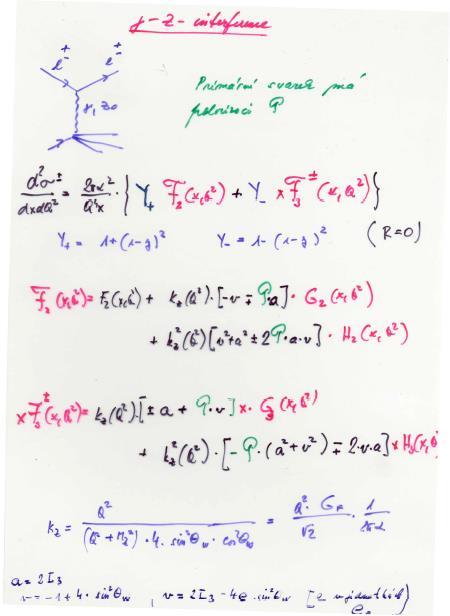 γ-Z-interference
l^± l^±
γ, Z0
Primární svazek má
polarizaci P
d²σ^±/dxdQ² = 2πα²/Q⁴x · { Y₊ F₂(x,Q²) + Y₋ xF₃^±(x,Q²) }
Y₊ = 1+(1-y)² Y₋ = 1-(1-y)² (R=0)
F₂(x,Q²) = F₂(x,Q²) + k_z(Q²)·[-v ∓ P·a]· G₂(x,Q²)
+ k_z²(Q²)[v²+a² ± 2P·a·v] · H₂(x,Q²)
xF₃^±(x,Q²) = k_z(Q²)·[± a + P·v] x· G₃(x,Q²)
+ k_z²(Q²)·[-P·(a²+v²) ∓ 2·v·a] x H₃(x,Q²)
k_z = Q²/((Q²+M_z²)·4·sin²θ_w·cos²θ_w) = Q²·G_F/√2 · 1/2πα
a = 2I₃
v = -1+4·sin²θ_w , v = 2I₃-4e·sin²θ_w